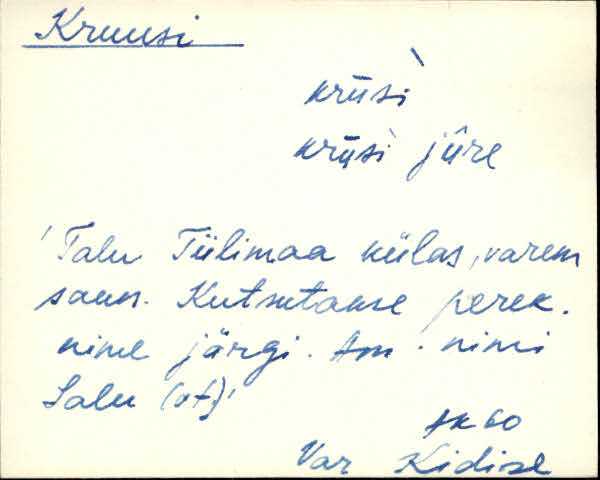 Kruusi
krūsi
krūsi jūre
'Talu Tiilimaa külas, varem
saun. Kutsutakse perek.
nime järgi. Am. nimi
Salu (vt.)'
AK 60
Var Kidise